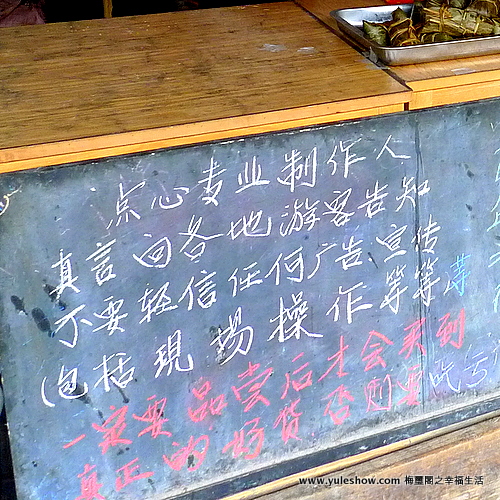 点心专业制作人
真言向各地游客告知
不要轻信任何广告宣传
(包括現場操作等等
一定要品尝后才会买到
真正的好货否则要吃亏
www.yuleshow.com 梅璽閣之幸福生活